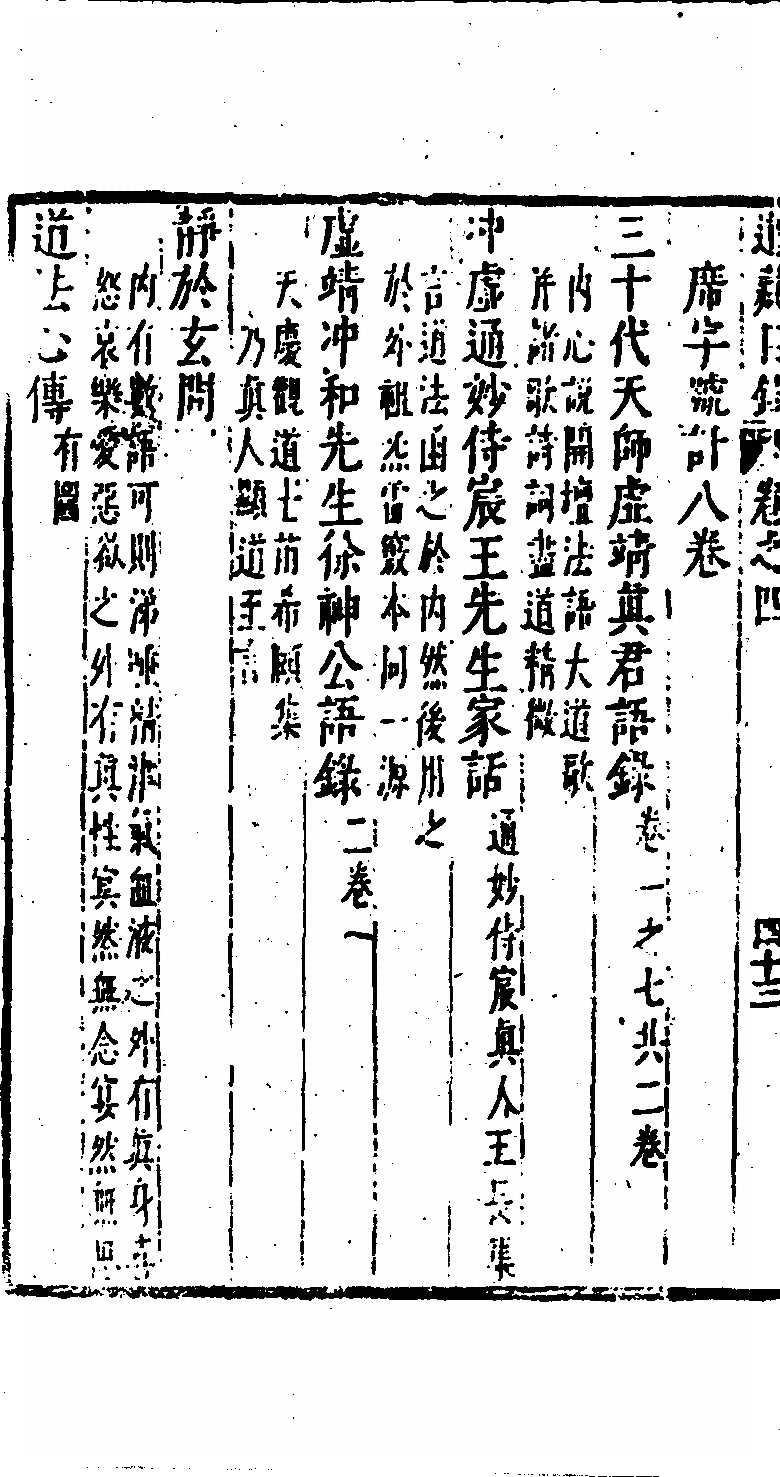 道藏目錄 卷之四 四十三
席字號計八卷
三十代天師虛靖眞君語錄 卷一之七共二卷
內心說開壇法語大道歌
并諸歌詩詞盡道精微
冲虛通妙侍宸王先生家話 通妙侍宸眞人王 集
言道法函之於內然後用之
於外 本同一源
虛靖冲和先生徐神公語錄 二卷一
天慶觀道士苗希頤集
乃眞人顯道至言
靜於玄問
內有數語可則涕唾精津氣血液之外有眞身喜
怒哀樂愛惡欲之外有眞性冥然無念窅然無思
道法心傳 有圖